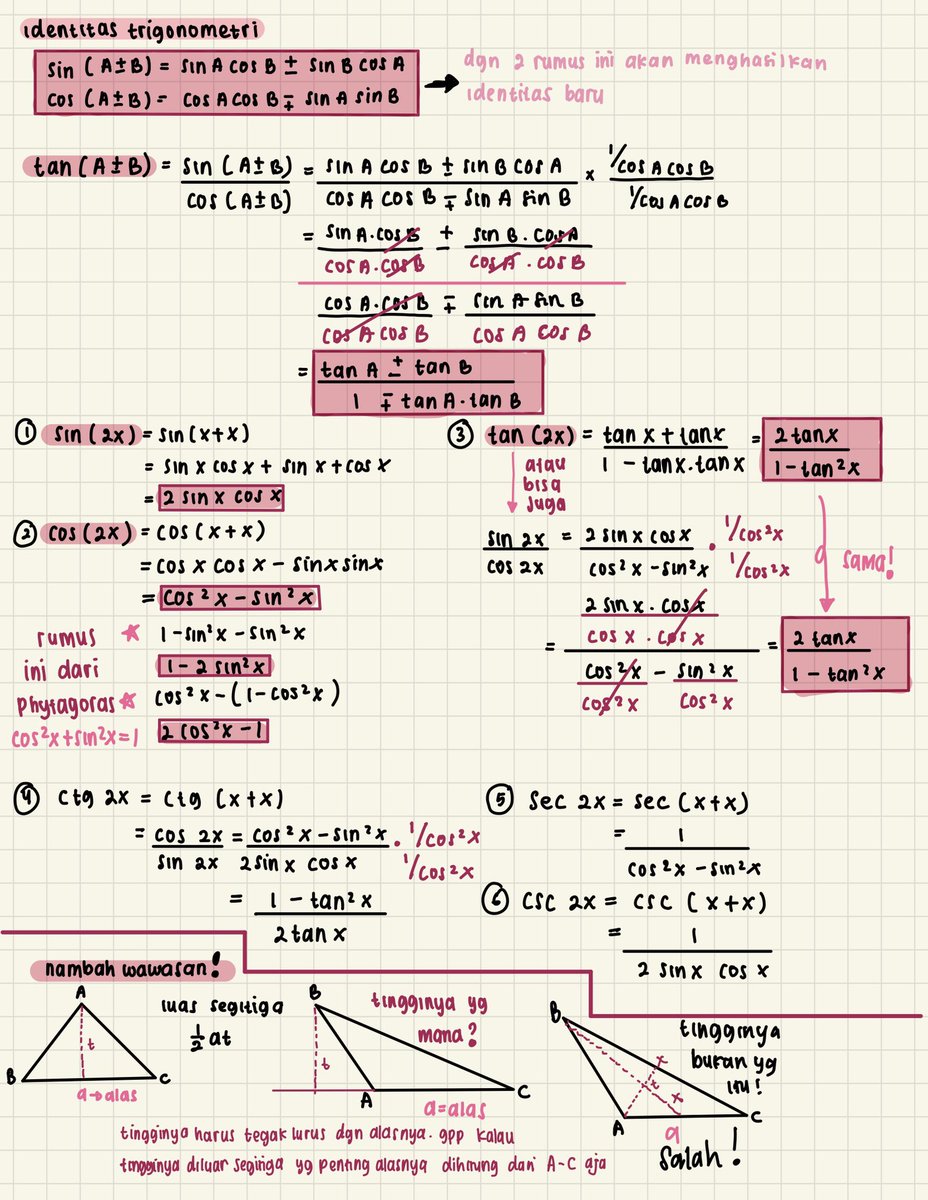 identitas trigonometri
sin (A±B) = sin A cos B ± sin B cos A
cos (A±B) = cos A cos B ∓ sin A sin B
dgn 2 rumus ini akan menghasilkan
identitas baru
tan (A±B) = sin (A±B)/cos (A±B) = (sin A cos B ± sin B cos A)/(cos A cos B ∓ sin A sin B) × (1/cos A cos B)/(1/cos A cos B)
= (sin A . cos B)/(cos A . cos B) ± (sin B . cos A)/(cos A . cos B)
(cos A . cos B)/(cos A cos B) ∓ (sin A sin B)/(cos A cos B)
= (tan A ± tan B)/(1 ∓ tan A . tan B)
① sin (2x) = sin (x+x)
= sin x cos x + sin x + cos x
= 2 sin x cos x
② cos (2x) = cos (x+x)
= cos x cos x - sin x sin x
= cos²x - sin²x
rumus ini dari phytagoras
cos²x + sin²x = 1
1 - sin²x - sin²x
1 - 2 sin²x
cos²x - (1 - cos²x)
2 cos²x - 1
③ tan (2x) = (tan x + tan x)/(1 - tan x . tan x) = 2 tan x/(1 - tan²x)
atau
bisa
juga
sin 2x/cos 2x = (2 sin x cos x)/(cos²x - sin²x) . (1/cos²x)/(1/cos²x)
sama!
= ((2 sin x . cos x)/(cos x . cos x))/((cos²x/cos²x) - (sin²x/cos²x)) = 2 tan x/(1 - tan²x)
④ ctg 2x = ctg (x+x)
= cos 2x/sin 2x = (cos²x - sin²x)/(2 sin x cos x) . (1/cos²x)/(1/cos²x)
= (1 - tan²x)/(2 tan x)
⑤ sec 2x = sec (x+x)
= 1/(cos²x - sin²x)
⑥ csc 2x = csc (x+x)
= 1/(2 sin x cos x)
nambah wawasan!
A
B
C
t
a→alas
luas segitiga
½ at
B
A
C
t
a=alas
tingginya yg
mana?
B
A
C
x
t
x
a
tingginya
bukan yg
itu!
salah!
tingginya harus tegak lurus dgn alasnya. gpp kalau
tingginya diluar segitiga yg penting alasnya dihitung dari A-C aja